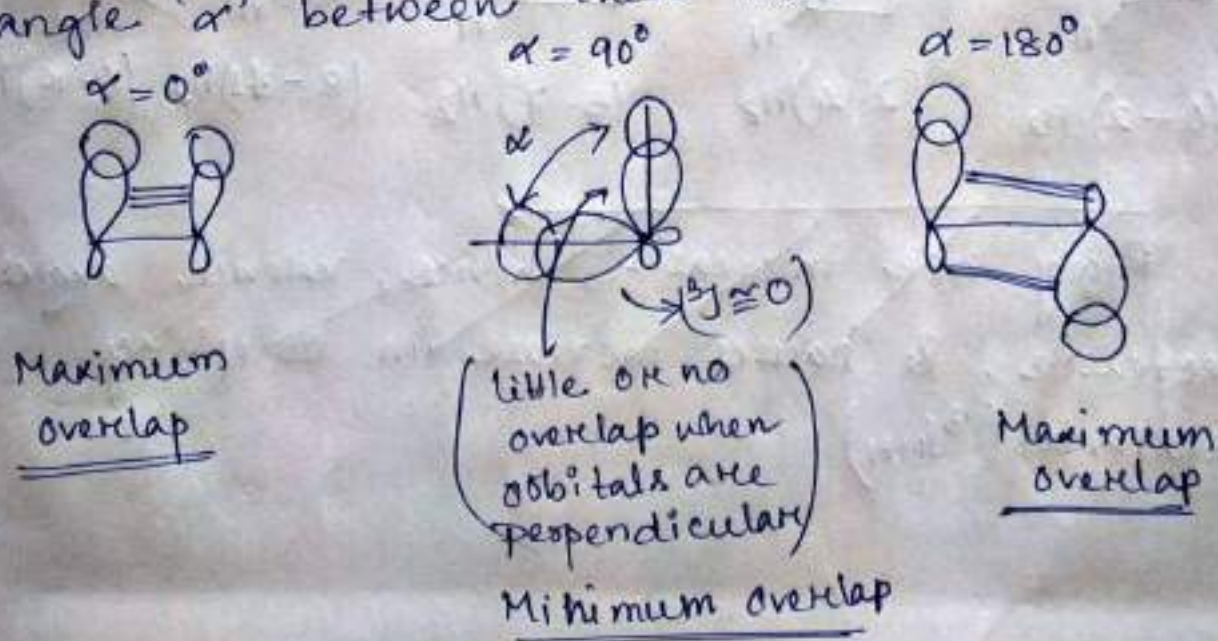 angle 'α' between
α = 0°
α = 90°
α = 180°
α
(³J ≅ 0)
Maximum
overlap
(little or no
overlap when
orbitals are
perpendicular)
Minimum overlap
Maximum
overlap